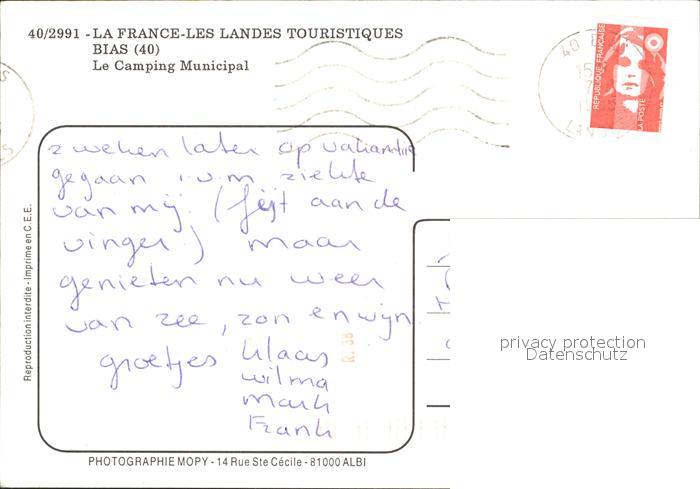 40/2991 - LA FRANCE-LES LANDES TOURISTIQUES
BIAS (40)
Le Camping Municipal
40
RÉPUBLIQUE FRANÇAISE
LA POSTE
2 weken later op vakantie
gegaan i.v.m ziekte
van mij. (fijt aan de
vinger) maar
genieten nu weer
van zee, zon en wijn
groetjes Klaas
Wilma
Mark
Frank
Reproduction interdite - Imprimé en C.E.E.
privacy protection
Datenschutz
PHOTOGRAPHIE MOPY - 14 Rue Ste Cécile - 81000 ALBI